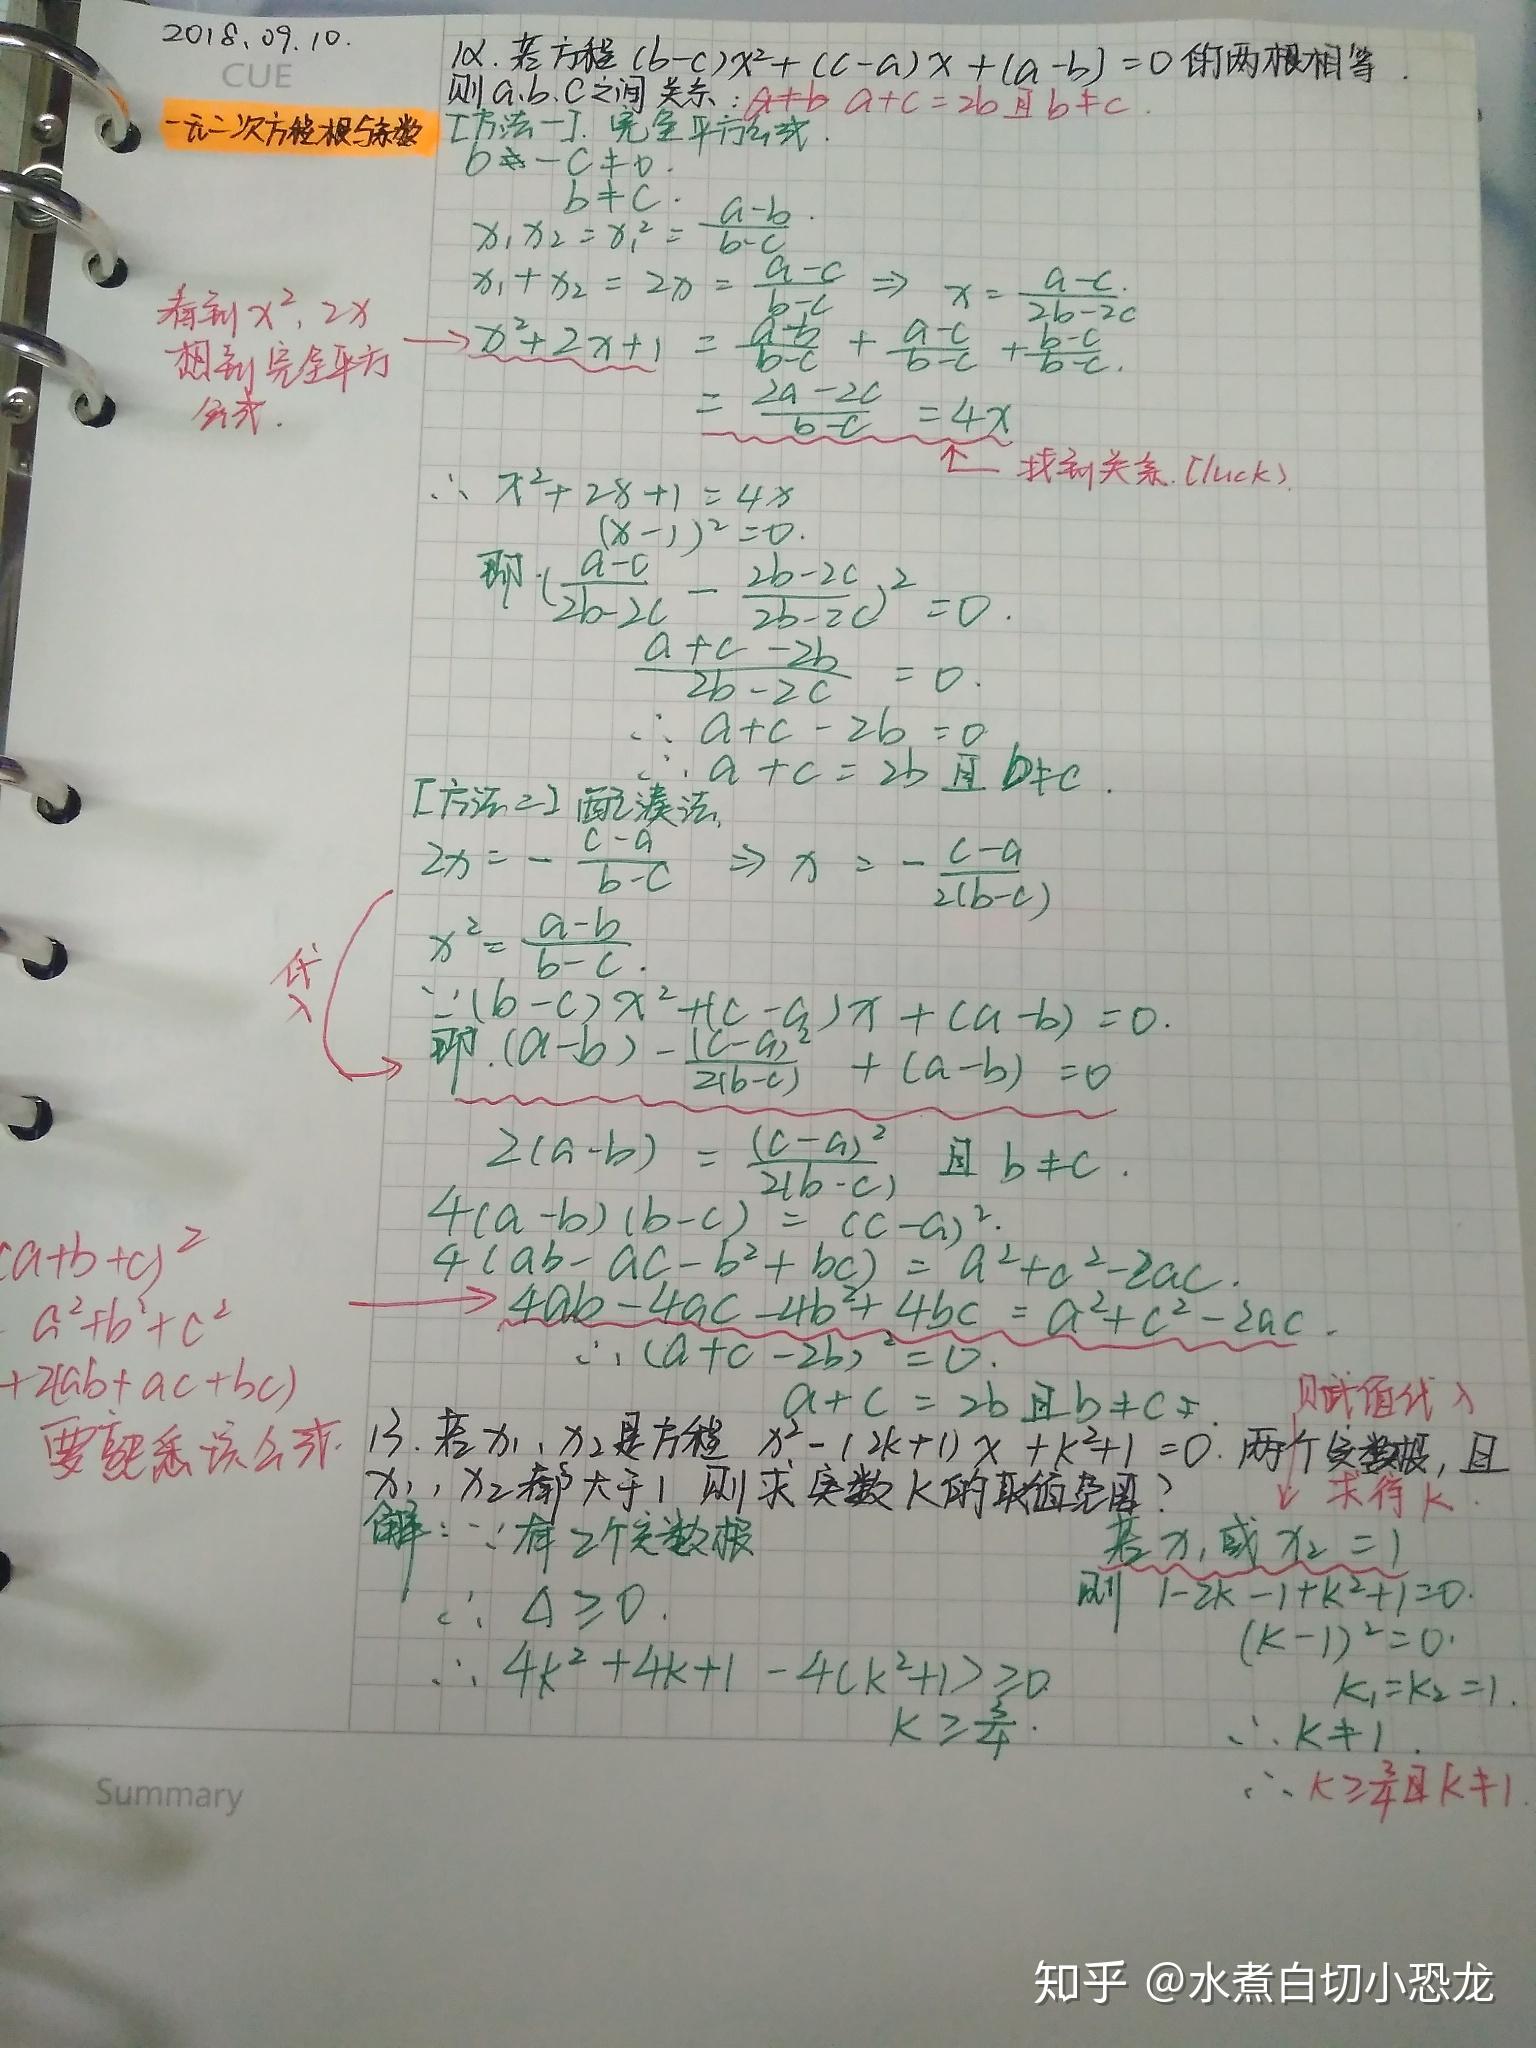 2018.09.10.
CUE
一元二次方程根与系数
12. 若方程 (b-c)x²+(c-a)x+(a-b)=0 的两根相等.
则 a.b.c 之间关系: a≠b a+c=2b且b≠c.
[方法一]. 完全平方公式.
b-c≠0.
b≠c.
x₁x₂=x₁²=(a-b)/(b-c).
x₁+x₂=2x=(a-c)/(b-c) ⇒ x=(a-c)/(2b-2c)
看到x², 2x
想到完全平方
公式.
x²+2x+1 = (a-b)/(b-c) + (a-c)/(b-c) + (b-c)/(b-c).
= (2a-2c)/(b-c) = 4x
找到关系.[luck).
∴ x²+2x+1=4x
(x-1)²=0.
即.((a-c)/(2b-2c) - (2b-2c)/(2b-2c))²=0.
(a+c-2b)/(2b-2c) = 0.
∴ a+c-2b=0
∴ a+c=2b且b≠c.
[方法二] 配凑法.
2x=-(c-a)/(b-c) ⇒ x=-(c-a)/(2(b-c))
x²=(a-b)/(b-c).
代入
∵(b-c)x²+(c-a)x+(a-b)=0.
即.(a-b)-(c-a)²/(2(b-c))+(a-b)=0
2(a-b)=(c-a)²/(2(b-c)) 且 b≠c.
4(a-b)(b-c)=(c-a)².
4(ab-ac-b²+bc)=a²+c²-2ac.
4ab-4ac-4b²+4bc=a²+c²-2ac.
∴(a+c-2b)²=0.
a+c=2b且b≠c.
(a+b+c)²
a²+b²+c²
+2(ab+ac+bc)
要熟悉该公式.
13. 若x₁, x₂是方程 x²-(2k+1)x+k²+1=0. 两个实数根, 且
x₁, x₂都大于1 则求实数k的取值范围?
解: ∵有2个实数根
∴ Δ≥0.
∴ 4k²+4k+1-4(k²+1)≥0
k≥3/4.
赋值代入
求得k.
若x₁或x₂=1
则 1-2k-1+k²+1=0.
(k-1)²=0.
k₁=k₂=1.
∴ k≠1.
∴ k≥3/4且k≠1.
Summary
知乎 @水煮白切小恐龙